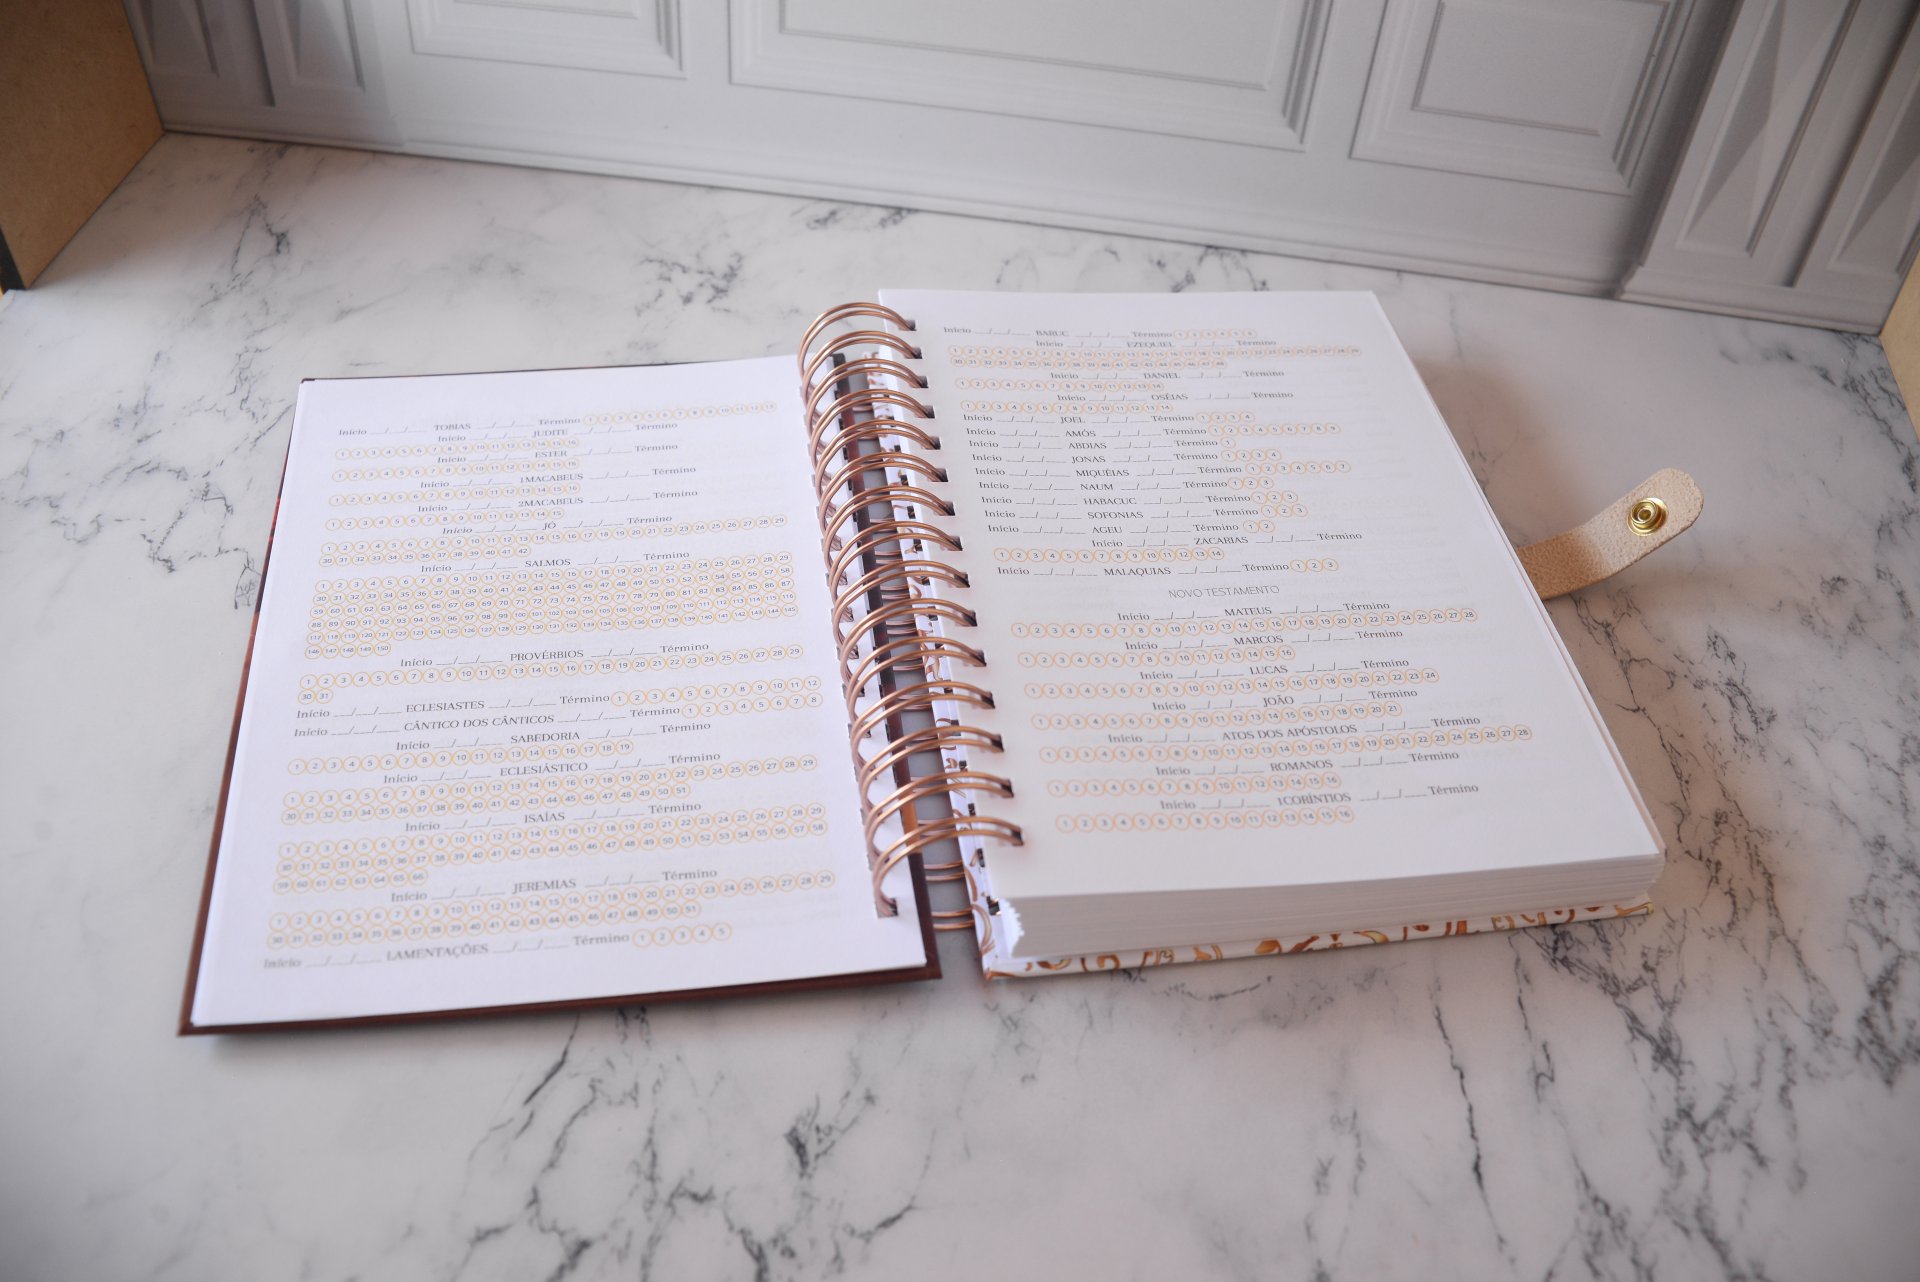 Início __/__/____ TOBIAS __/__/____ Término 1 2 3 4 5 6 7 8 9 10 11 12 13
Início __/__/____ JUDITE __/__/____ Término
1 2 3 4 5 6 7 8 9 10 11 12 13 14 15 16
Início __/__/____ ESTER __/__/____ Término
1 2 3 4 5 6 7 8 9 10 11 12 13 14 15 16
Início __/__/____ 1MACABEUS __/__/____ Término
1 2 3 4 5 6 7 8 9 10 11 12 13 14 15 16
Início __/__/____ 2MACABEUS __/__/____ Término
1 2 3 4 5 6 7 8 9 10 11 12 13 14 15
Início __/__/____ JÓ __/__/____ Término
1 2 3 4 5 6 7 8 9 10 11 12 13 14 15 16 17 18 19 20 21 22 23 24 25 26 27 28 29
30 31 32 33 34 35 36 37 38 39 40 41 42
Início __/__/____ SALMOS __/__/____ Término
1 2 3 4 5 6 7 8 9 10 11 12 13 14 15 16 17 18 19 20 21 22 23 24 25 26 27 28 29
30 31 32 33 34 35 36 37 38 39 40 41 42 43 44 45 46 47 48 49 50 51 52 53 54 55 56 57 58
59 60 61 62 63 64 65 66 67 68 69 70 71 72 73 74 75 76 77 78 79 80 81 82 83 84 85 86 87
88 89 90 91 92 93 94 95 96 97 98 99 100 101 102 103 104 105 106 107 108 109 110 111 112 113 114 115 116
117 118 119 120 121 122 123 124 125 126 127 128 129 130 131 132 133 134 135 136 137 138 139 140 141 142 143 144 145
146 147 148 149 150
Início __/__/____ PROVÉRBIOS __/__/____ Término
1 2 3 4 5 6 7 8 9 10 11 12 13 14 15 16 17 18 19 20 21 22 23 24 25 26 27 28 29
30 31
Início __/__/____ ECLESIASTES __/__/____ Término 1 2 3 4 5 6 7 8 9 10 11 12
Início __/__/____ CÂNTICO DOS CÂNTICOS __/__/____ Término 1 2 3 4 5 6 7 8
Início __/__/____ SABEDORIA __/__/____ Término
1 2 3 4 5 6 7 8 9 10 11 12 13 14 15 16 17 18 19
Início __/__/____ ECLESIÁSTICO __/__/____ Término
1 2 3 4 5 6 7 8 9 10 11 12 13 14 15 16 17 18 19 20 21 22 23 24 25 26 27 28 29
30 31 32 33 34 35 36 37 38 39 40 41 42 43 44 45 46 47 48 49 50 51
Início __/__/____ ISAÍAS __/__/____ Término
1 2 3 4 5 6 7 8 9 10 11 12 13 14 15 16 17 18 19 20 21 22 23 24 25 26 27 28 29
30 31 32 33 34 35 36 37 38 39 40 41 42 43 44 45 46 47 48 49 50 51 52 53 54 55 56 57 58
59 60 61 62 63 64 65 66
Início __/__/____ JEREMIAS __/__/____ Término
1 2 3 4 5 6 7 8 9 10 11 12 13 14 15 16 17 18 19 20 21 22 23 24 25 26 27 28 29
30 31 32 33 34 35 36 37 38 39 40 41 42 43 44 45 46 47 48 49 50 51
Início __/__/____ LAMENTAÇÕES __/__/____ Término 1 2 3 4 5
Início __/__/____ BARUC __/__/____ Término 1 2 3 4 5 6
Início __/__/____ EZEQUIEL __/__/____ Término
1 2 3 4 5 6 7 8 9 10 11 12 13 14 15 16 17 18 19 20 21 22 23 24 25 26 27 28 29
30 31 32 33 34 35 36 37 38 39 40 41 42 43 44 45 46 47 48
Início __/__/____ DANIEL __/__/____ Término
1 2 3 4 5 6 7 8 9 10 11 12 13 14
Início __/__/____ OSÉIAS __/__/____ Término
1 2 3 4 5 6 7 8 9 10 11 12 13 14
Início __/__/____ JOEL __/__/____ Término 1 2 3 4
Início __/__/____ AMÓS __/__/____ Término 1 2 3 4 5 6 7 8 9
Início __/__/____ ABDIAS __/__/____ Término 1
Início __/__/____ JONAS __/__/____ Término 1 2 3 4
Início __/__/____ MIQUÉIAS __/__/____ Término 1 2 3 4 5 6 7
Início __/__/____ NAUM __/__/____ Término 1 2 3
Início __/__/____ HABACUC __/__/____ Término 1 2 3
Início __/__/____ SOFONIAS __/__/____ Término 1 2 3
Início __/__/____ AGEU __/__/____ Término 1 2
Início __/__/____ ZACARIAS __/__/____ Término
1 2 3 4 5 6 7 8 9 10 11 12 13 14
Início __/__/____ MALAQUIAS __/__/____ Término 1 2 3
NOVO TESTAMENTO
Início __/__/____ MATEUS __/__/____ Término
1 2 3 4 5 6 7 8 9 10 11 12 13 14 15 16 17 18 19 20 21 22 23 24 25 26 27 28
Início __/__/____ MARCOS __/__/____ Término
1 2 3 4 5 6 7 8 9 10 11 12 13 14 15 16
Início __/__/____ LUCAS __/__/____ Término
1 2 3 4 5 6 7 8 9 10 11 12 13 14 15 16 17 18 19 20 21 22 23 24
Início __/__/____ JOÃO __/__/____ Término
1 2 3 4 5 6 7 8 9 10 11 12 13 14 15 16 17 18 19 20 21
Início __/__/____ ATOS DOS APÓSTOLOS __/__/____ Término
1 2 3 4 5 6 7 8 9 10 11 12 13 14 15 16 17 18 19 20 21 22 23 24 25 26 27 28
Início __/__/____ ROMANOS __/__/____ Término
1 2 3 4 5 6 7 8 9 10 11 12 13 14 15 16
Início __/__/____ 1CORÍNTIOS __/__/____ Término
1 2 3 4 5 6 7 8 9 10 11 12 13 14 15 16